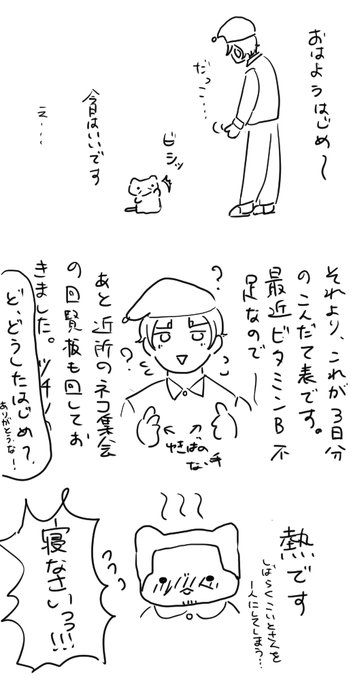 おはようはじめ〜
だっこ…
ビシッ
今日はいいです
え……
それより、これが3日分
のこんだて表です。
最近ビタミンB不
足なので〜
あと 近所のネコ集会
の回覧板も回してお
きました。
ど、どうしたはじめ？
ありがとうな！
熱です
しばらくこいとさんを
一人にしてしまう…
寝なさいっっ!!!